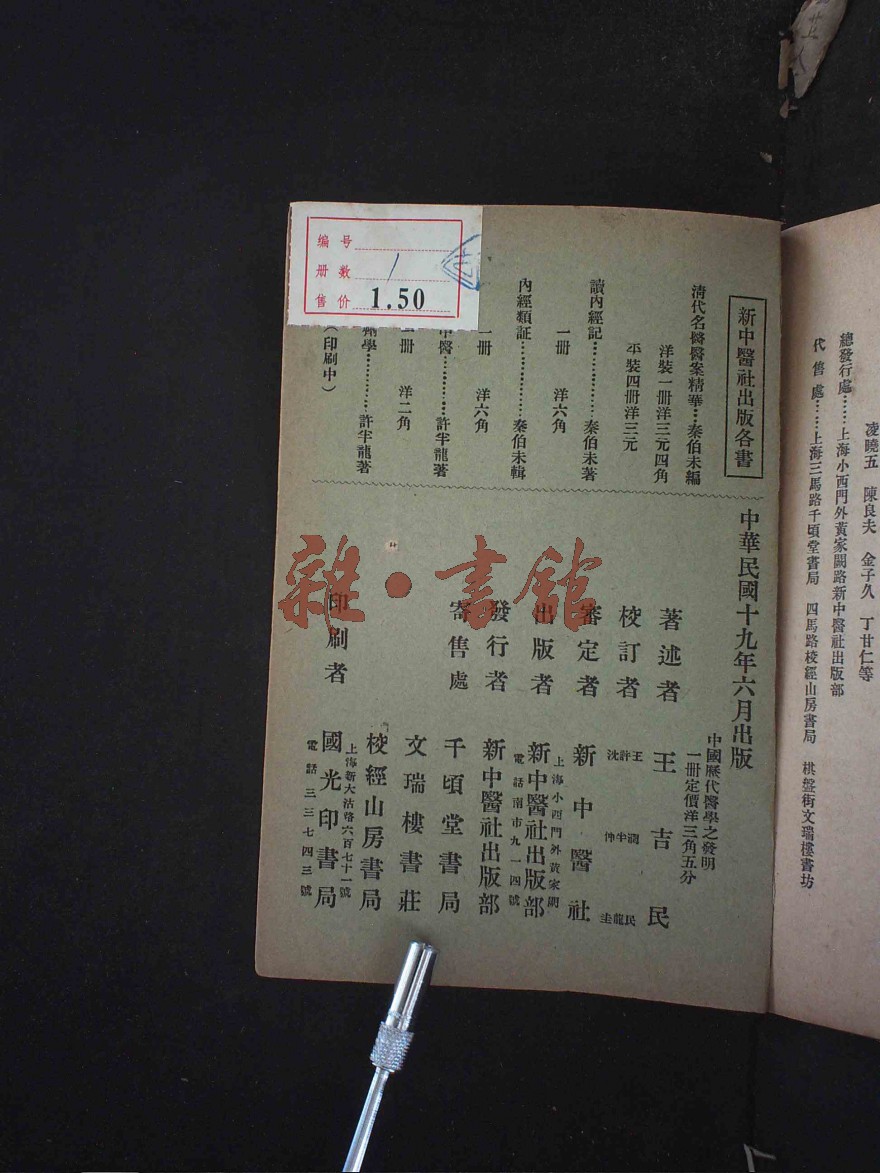 凌曉五　陳良夫　金子久　丁甘仁等
總發行處……上海小西門外黃家闕路新中醫社出版部
代售處……上海三馬路千頃堂書局　四馬路校經山房書局　棋盤街文瑞樓書坊
新中醫社出版各書
清代名醫醫案精華…秦伯未編
洋裝一冊洋三元四角
裝四冊洋三元
讀內經記………秦伯未著
一冊　洋六角
內經類証………秦伯未輯
一冊　洋六角
中醫………許半龍著
冊　洋二角
學………許半龍著
（印刷中）
中華民國十九年六月出版
中國歷代醫學之發明
一冊定價洋三角五分
著述者　王吉民
校訂者　王潤民　許半龍　沈仲圭
審定者　新中醫社
上海小西門外黃家闕
出版者　新中醫社出版部
電話南市九一四號
發行者　新中醫社出版部
寄售處　千頃堂書局
文瑞樓書莊
校經山房書局
上海新大沽路六百七十一號
印刷者　國光印書局
電話三三七四三號
编号
册数 1
售价 1.50
雜·書館